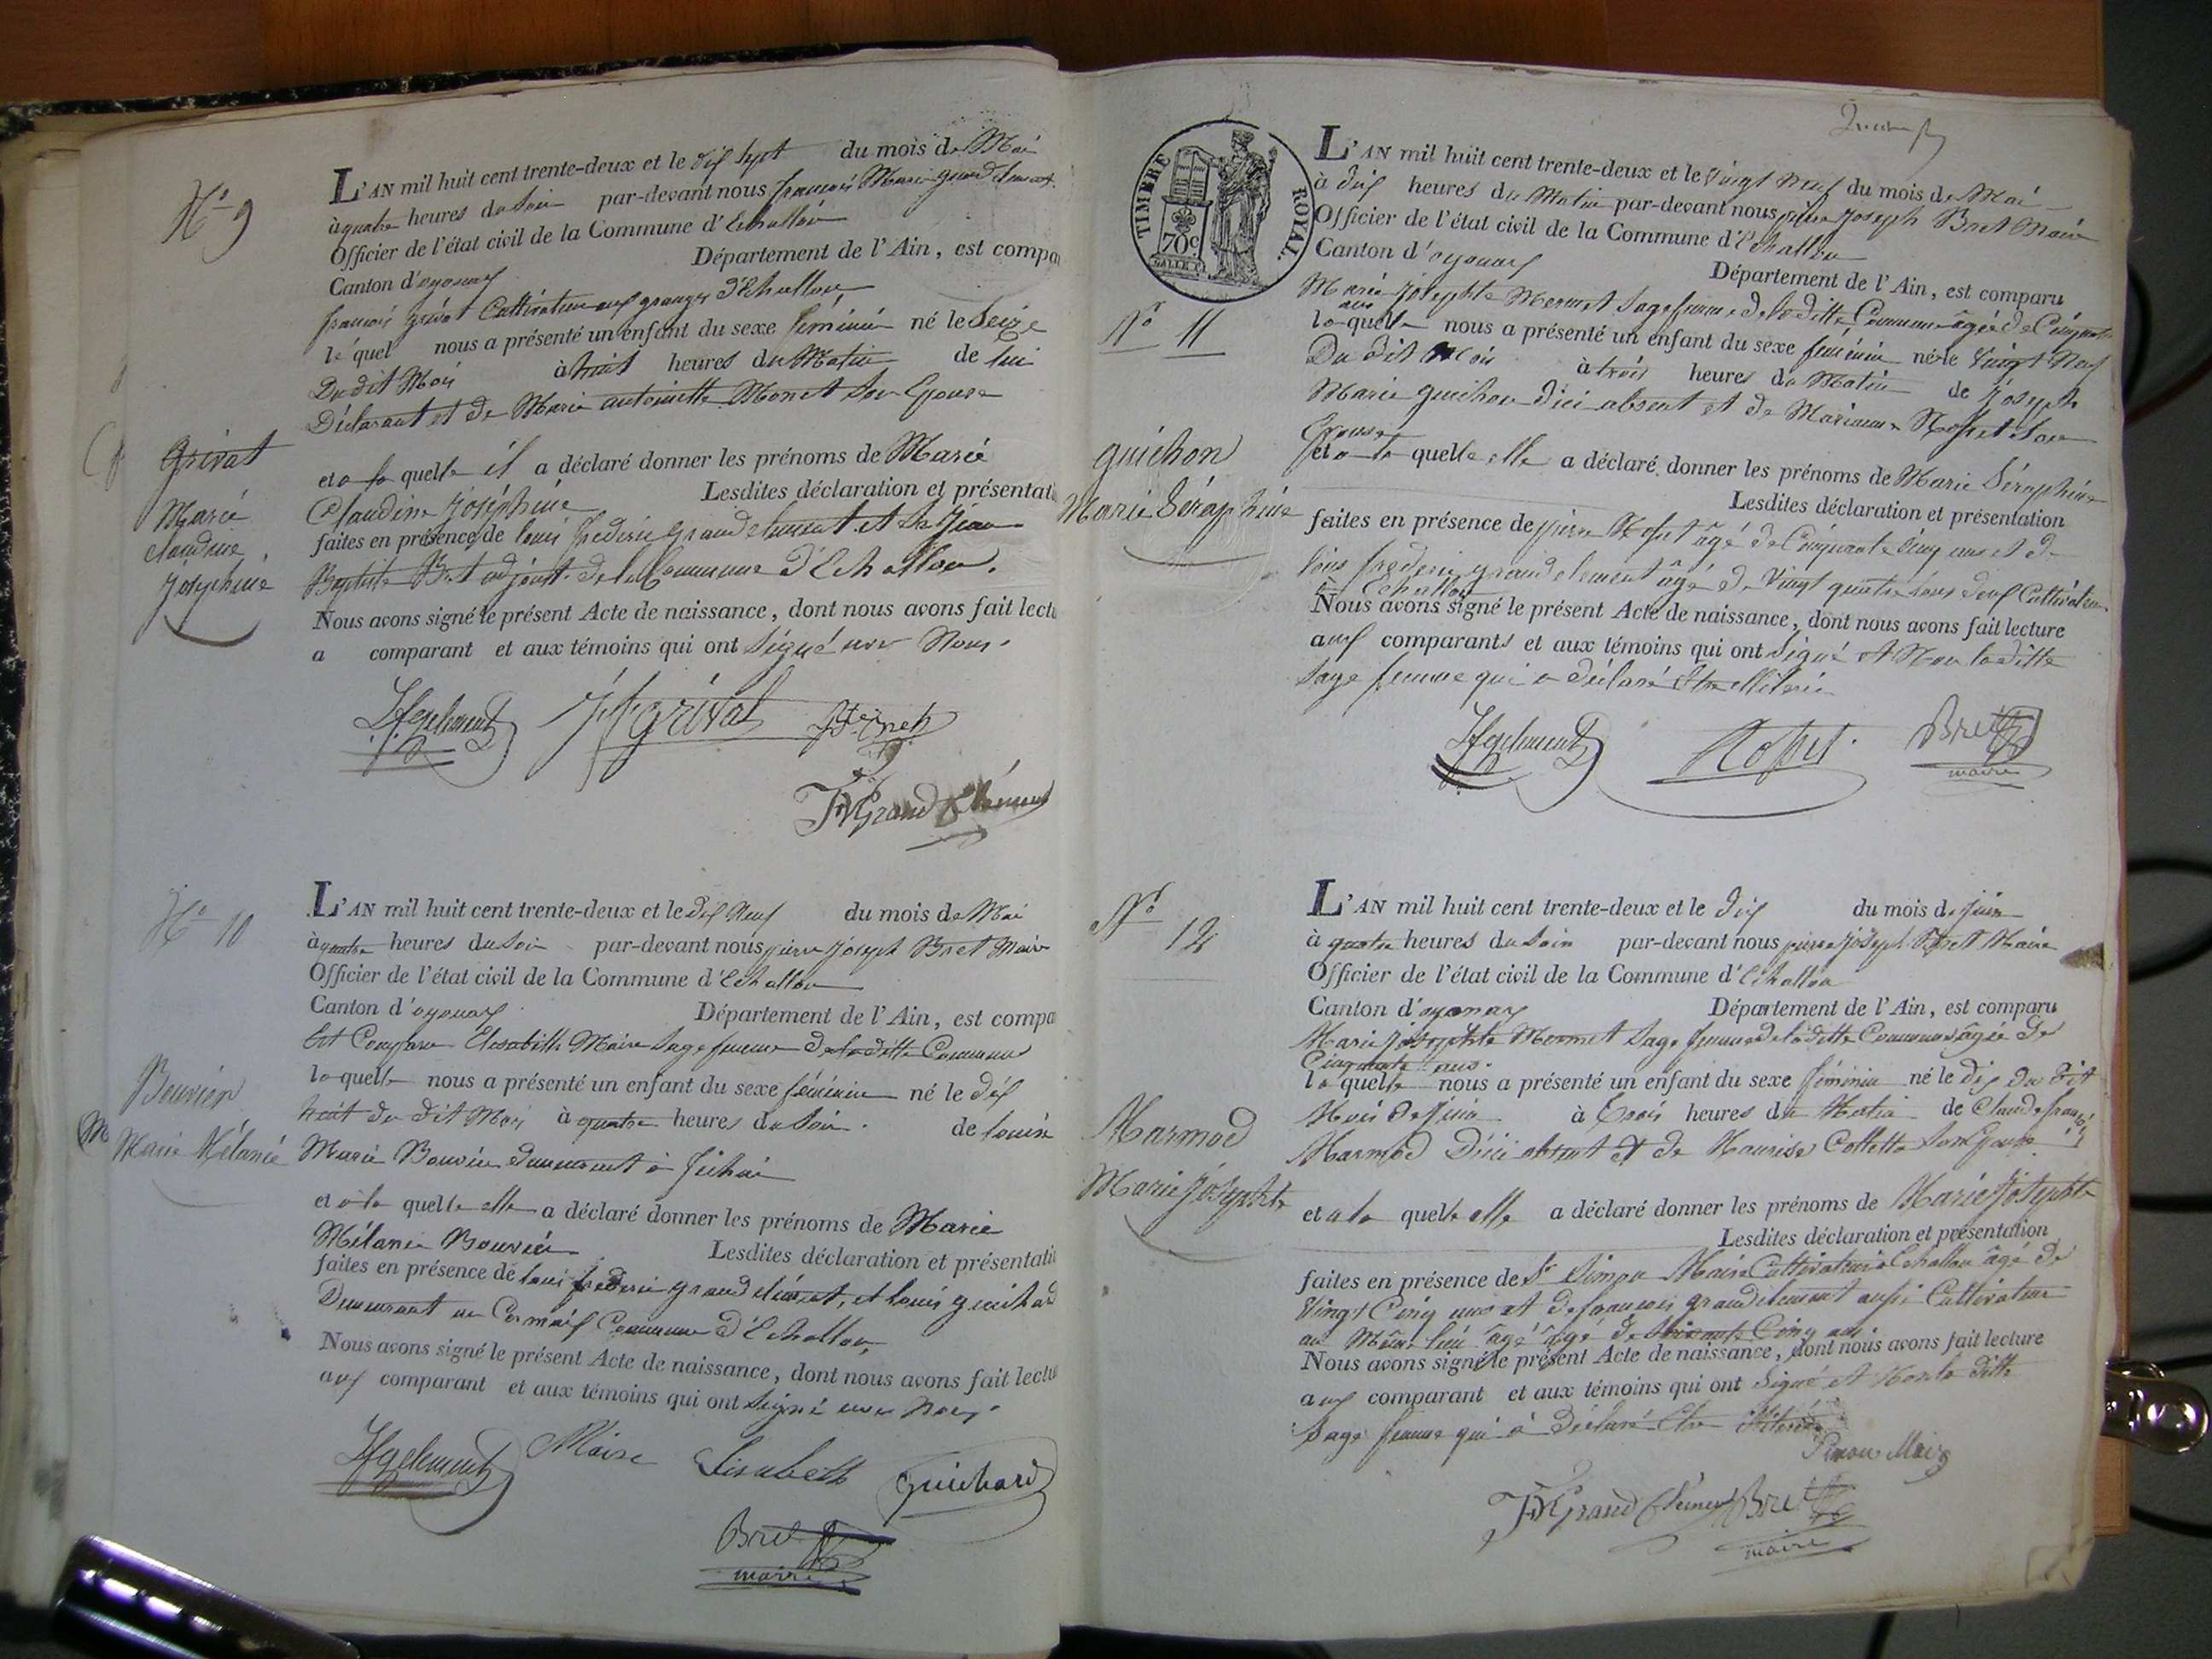 N° 9
Grivat
Marie
claudine
Joséphine
L'AN mil huit cent trente-deux et le dix sept du mois de Mai
à quatre heures du Soir par-devant nous françois Marie grandclement
Officier de l'état civil de la Commune d'Echallon
Canton d'oyonax Département de l'Ain, est compa
françois grivat Cultivateur aux granges d'Echallon
lequel nous a présenté un enfant du sexe féminin né le Seize
Du dit Mois à huit heures du Matin de lui
Déclarant et de Marie antoinette Monet Son Epouse
et a la quelle il a déclaré donner les prénoms de Marie
Claudine Joséphine Lesdites déclaration et présentati
faites en présence de louis frederic grandclement et de Jean
Baptiste Bret adjoint de la Commune d'Echallon.
Nous avons signé le présent Acte de naissance, dont nous avons fait lectu
a comparant et aux témoins qui ont Signé avec Nous.
grivat
Grand Clément
N° 10
Bouvier
Marie Mélanie
L'AN mil huit cent trente-deux et le dix Neuf du mois de Mai
à quatre heures du Soir par-devant nous pierre Joseph Bret Maire
Officier de l'état civil de la Commune d'Echallon
Canton d'oyonax Département de l'Ain, est compa
Est Comparu Elisabeth Maire Sage femme de la ditte Commune
la quelle nous a présenté un enfant du sexe féminin né le dix
huit du dit Mois à quatre heures du Soir. de louise
Marie Bouvier demeurant à
et à la quelle elle a déclaré donner les prénoms de Marie
Mélanie Bouvier Lesdites déclaration et présentatio
faites en présence de louis frederic grandclément, et louis guichard
Demeurant au Commune d'Echallon,
Nous avons signé le présent Acte de naissance, dont nous avons fait lectu
aux comparant et aux témoins qui ont Signé avec Nous.
Maire Lisabeth Guichard
Bret
maire
TIMBRE ROYAL
70c
N° 11
guichon
Marie Séraphine
L'AN mil huit cent trente-deux et le Vingt Neuf du mois de Mai
à dix heures du Matin par-devant nous pierre Joseph Bret Maire
Officier de l'état civil de la Commune d'Echallon
Canton d'oyonax Département de l'Ain, est comparu
Marie Josephte Mermet Sage femme de la ditte Commune âgée de Cinquante
ans
la quelle nous a présenté un enfant du sexe féminin né le Vingt Neuf
Du dit Mois à trois heures du Matin de Joseph
Marie guichon d'ici absent et de Marianne Rosset Son
Epouse
et a la quelle elle a déclaré donner les prénoms de Marie Séraphine
Lesdites déclaration et présentation
faites en présence de pierre Rosset âgé de Cinquante Cinq ans et de
louis frederic grandclement âgé de Vingt quatre tous deux Cultivateurs
à Echallon
Nous avons signé le présent Acte de naissance, dont nous avons fait lecture
aux comparants et aux témoins qui ont Signé et Non la ditte
Sage femme qui a déclaré être illiterée
Rosset
Bret
maire
N° 12
Marmod
Marie Josephte
L'AN mil huit cent trente-deux et le dix du mois de Juin
à quatre heures du Soir par-devant nous pierre Joseph Bret Maire
Officier de l'état civil de la Commune d'Echallon
Canton d'oyonax Département de l'Ain, est comparu
Marie Josephte Mermet Sage femme de la ditte Commune âgée de
Cinquante ans.
la quelle nous a présenté un enfant du sexe féminin né le dix du dit
Mois de Juin à trois heures du Matin de Claude françois
Marmod d'ici absent et de Maurise Collette Son Epouse
et a la quelle elle a déclaré donner les prénoms de Marie Josephte
Lesdites déclaration et présentation
faites en présence de Sr Simon Maire Cultivateur à Echallon âgé de
Vingt Cinq ans et de françois grandclement aussi Cultivateur
au Même lieu âgé âgé de Soixante Cinq ans.
Nous avons signé le présent Acte de naissance, dont nous avons fait lecture
aux comparant et aux témoins qui ont Signé et Non la ditte
Sage femme qui à déclaré être illiterée
Simon Maire
Grand Clément Bret
maire